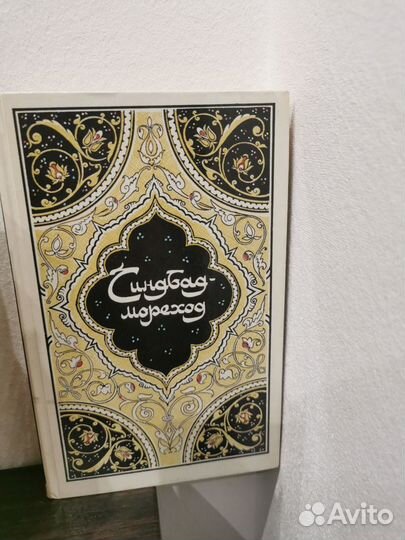 Синдбад-
мореход
Avito